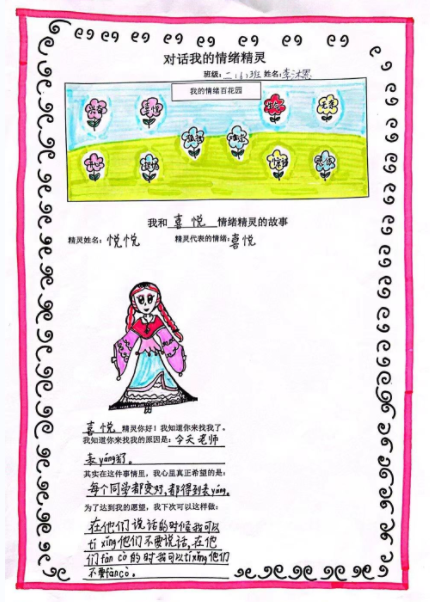 对话我的情绪精灵
班级:二(8)班 姓名:李沐恩
我的情绪百花园
我和 喜悦 情绪精灵的故事
精灵姓名:悦悦 精灵代表的情绪:喜悦
喜悦 精灵你好!我知道你来找我了。
我知道你来找我的原因是:今天老师
表yáng了。
其实在这件事情里,我心里真正希望的是:
每个同学都变好,都得到表yáng。
为了达到我的愿望,我下次可以这样做:
在他们说话的时候我可以
tí xǐng他们不要说话,在他
们fàn cò的时我可以tíxǐng他们
不要fàncò。